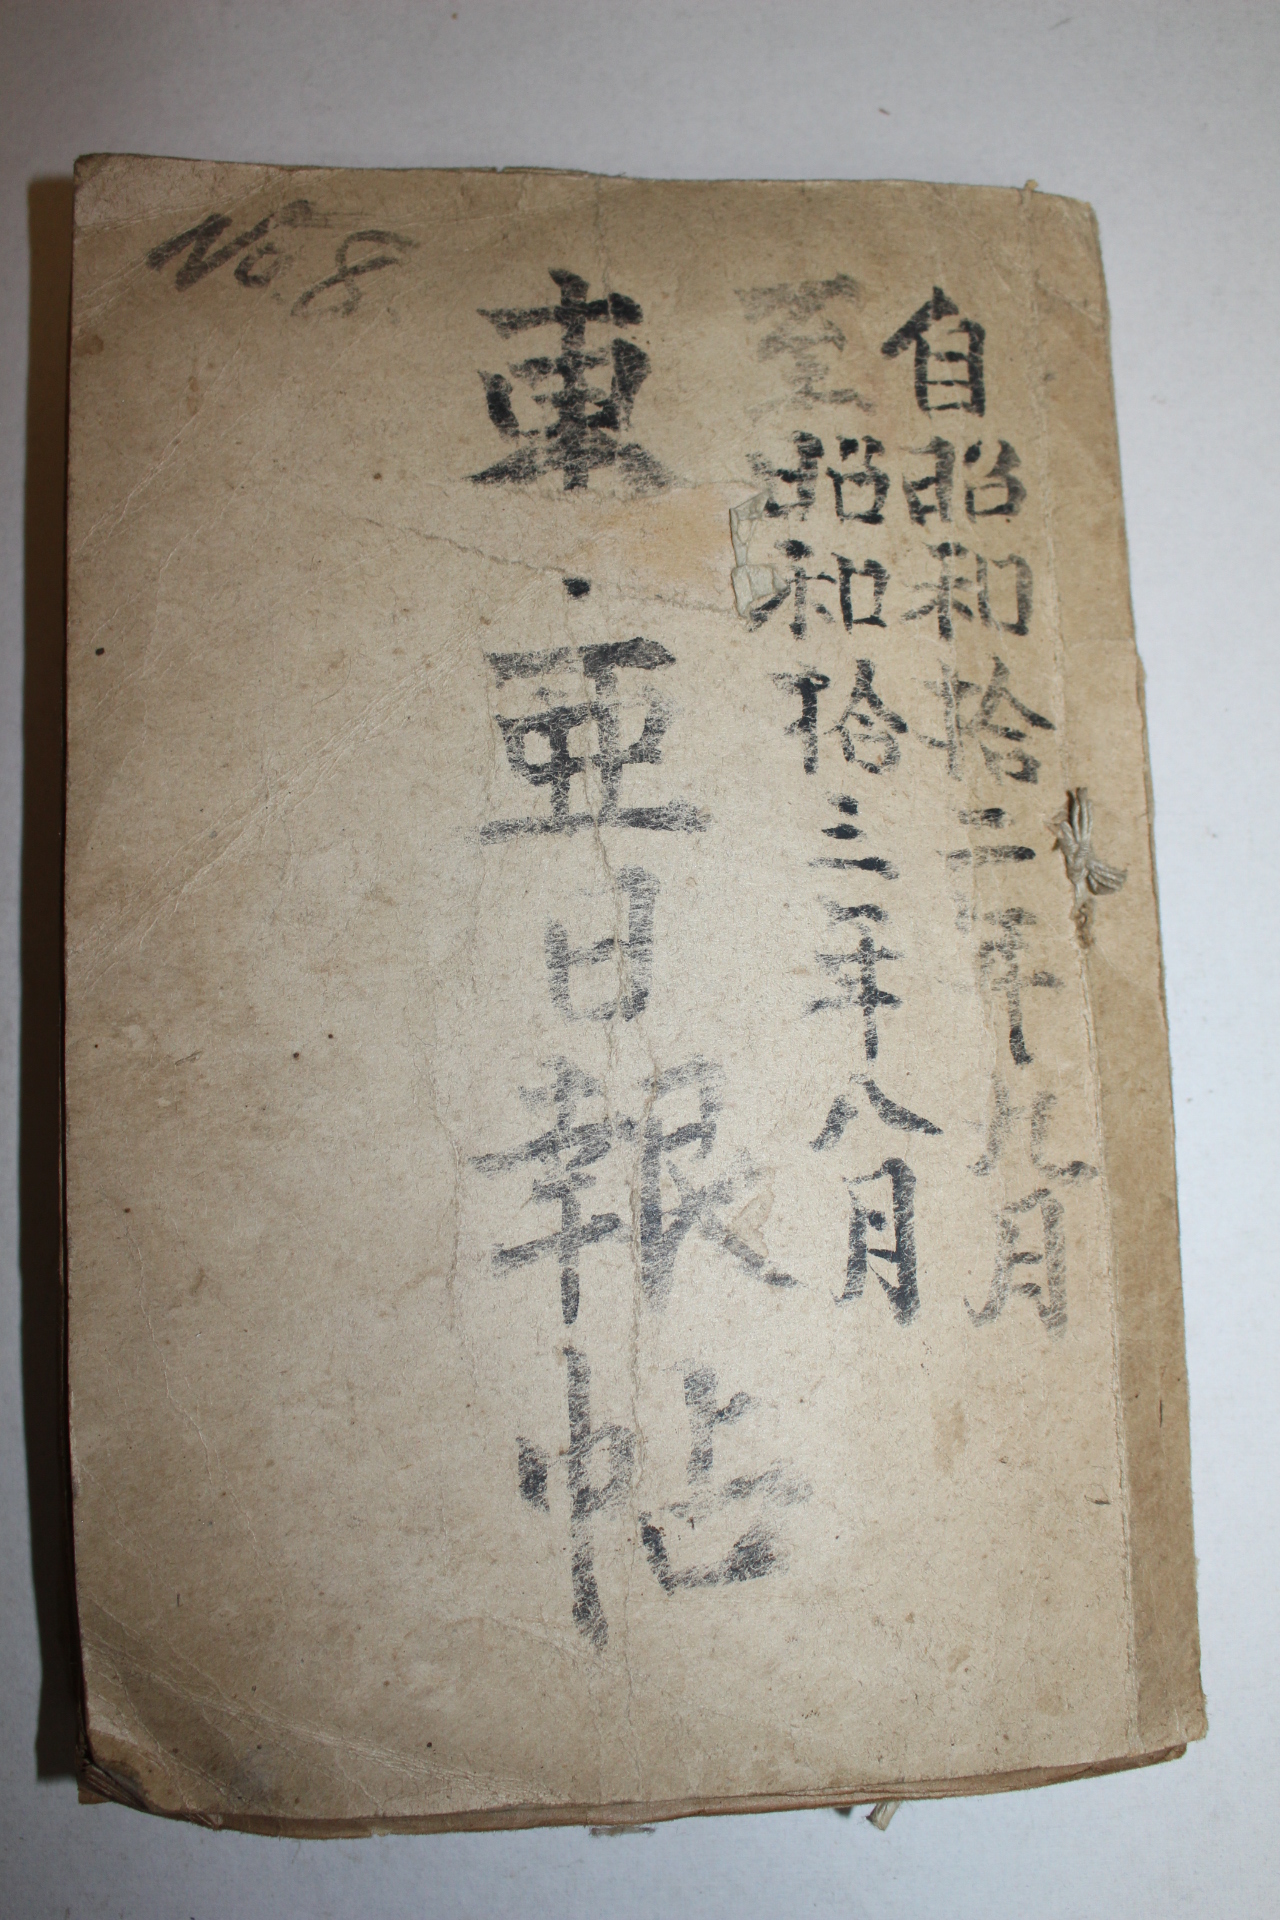 自昭和拾二年九月
至昭和拾三年八月
東亜日報帖
No.8.